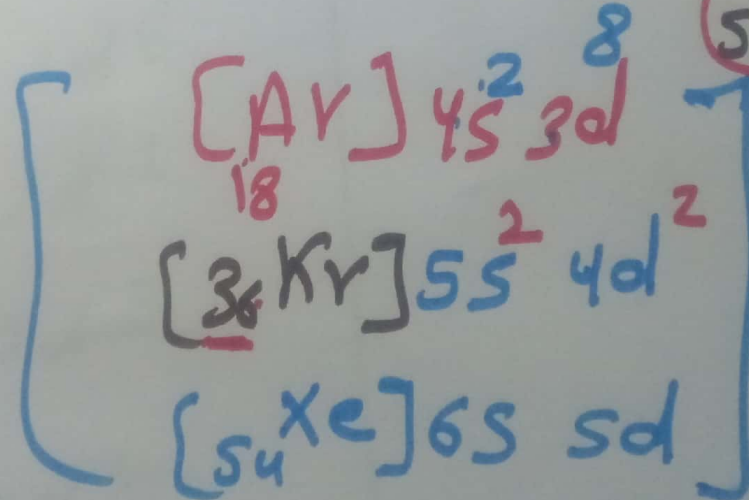 5
[Ar] 4s² 3d⁸
18
[36 Kr] 5s² 4d²
[54 Xe] 6s 5d